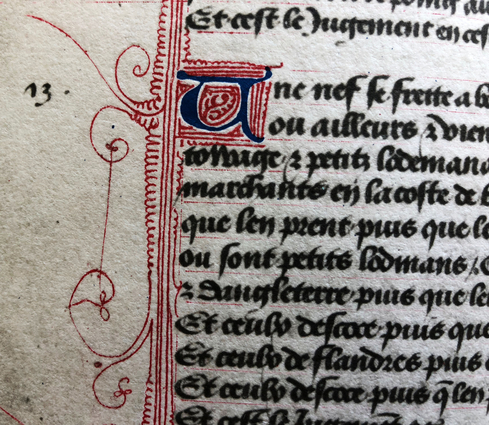 Et cest le Jugement en ces
13 .
Une nef se frette a b
ou ailleurs, ⁊ vien
towage, ⁊ petitz lodemana
marchants en la coste de
que len prent puis que le
ou sont petits lodmans, ⁊
⁊ Dangleterre puis que le
Et ceulx descoce puis que
Et ceulx de flandres puis
Et ceulx descoce puis q̃ len
Et cest le Jugemẽt